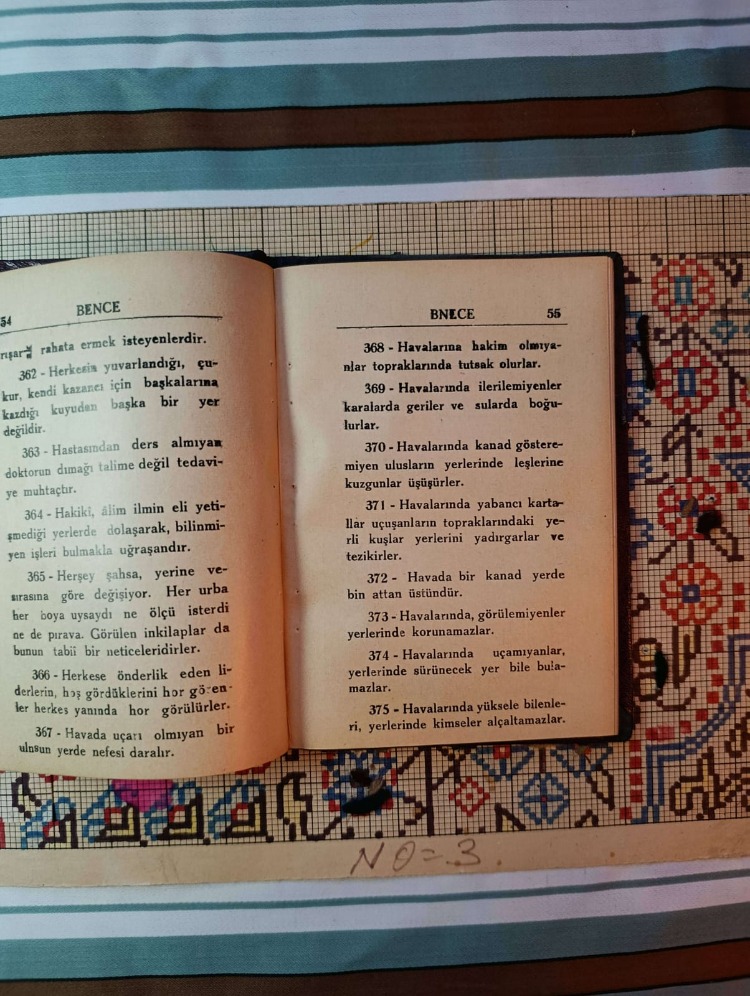 54 BENCE
rahata ermek isteyenlerdir.
362 - Herkesin yuvarlandığı, çu-
kur, kendi kazancı için başkalarına
kazdığı kuyudan başka bir yer
değildir.
363 - Hastasından ders almıyan
doktorun dımağı talime değil tedavi-
ye muhaçtır.
364 - Hakiki, âlim ilmin eli yeti-
şmediği yerlerde dolaşarak, bilinmi-
yen işleri bulmakla uğraşandır.
365 - Herşey şahsa, yerine ve-
sırasına göre değişiyor. Her urba
her boya uysaydı ne ölçü isterdi
ne de pırava. Görülen inkilaplar da
bunun tabii bir neticeleridirler.
366 - Herkese önderlik eden li-
derlerin, hoş gördüklerini hor gören-
ler herkes yanında hor görülürler.
367 - Havada uçarı olmıyan bir
ulnsun yerde nefesi daralır.
BNECE 55
368 - Havalarına hakim olmıya-
nlar topraklarında tutsak olurlar.
369 - Havalarında ilerilemiyenler
karalarda geriler ve sularda boğu-
lurlar.
370 - Havalarında kanad göstere-
miyen ulusların yerlerinde leşlerine
kuzgunlar üşüşürler.
371 - Havalarında yabancı karta-
llar uçuşanların topraklarındaki ye-
rli kuşlar yerlerini yadırgarlar ve
tezikirler.
372 - Havada bir kanad yerde
bin attan üstündür.
373 - Havalarında, görülemiyenler
yerlerinde korunamazlar.
374 - Havalarında uçamıyanlar,
yerlerinde sürünecek yer bile bula-
mazlar.
375 - Havalarında yüksele bilenle-
ri, yerlerinde kimseler alçaltamazlar.
NO=3.